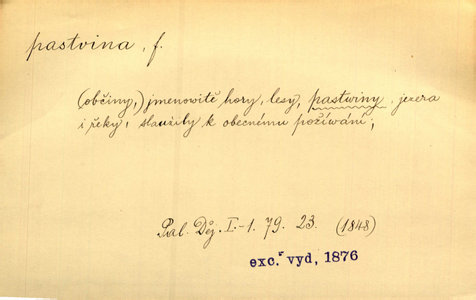 pastvina, f.
(občiny,) jmenovitě hory, lesy, pastwiny, jezera
i řeky, slaužily k obecnému požíwání;
Pal. Děj. I.-1. 79. 23. (1848)
exc. z vyd, 1876